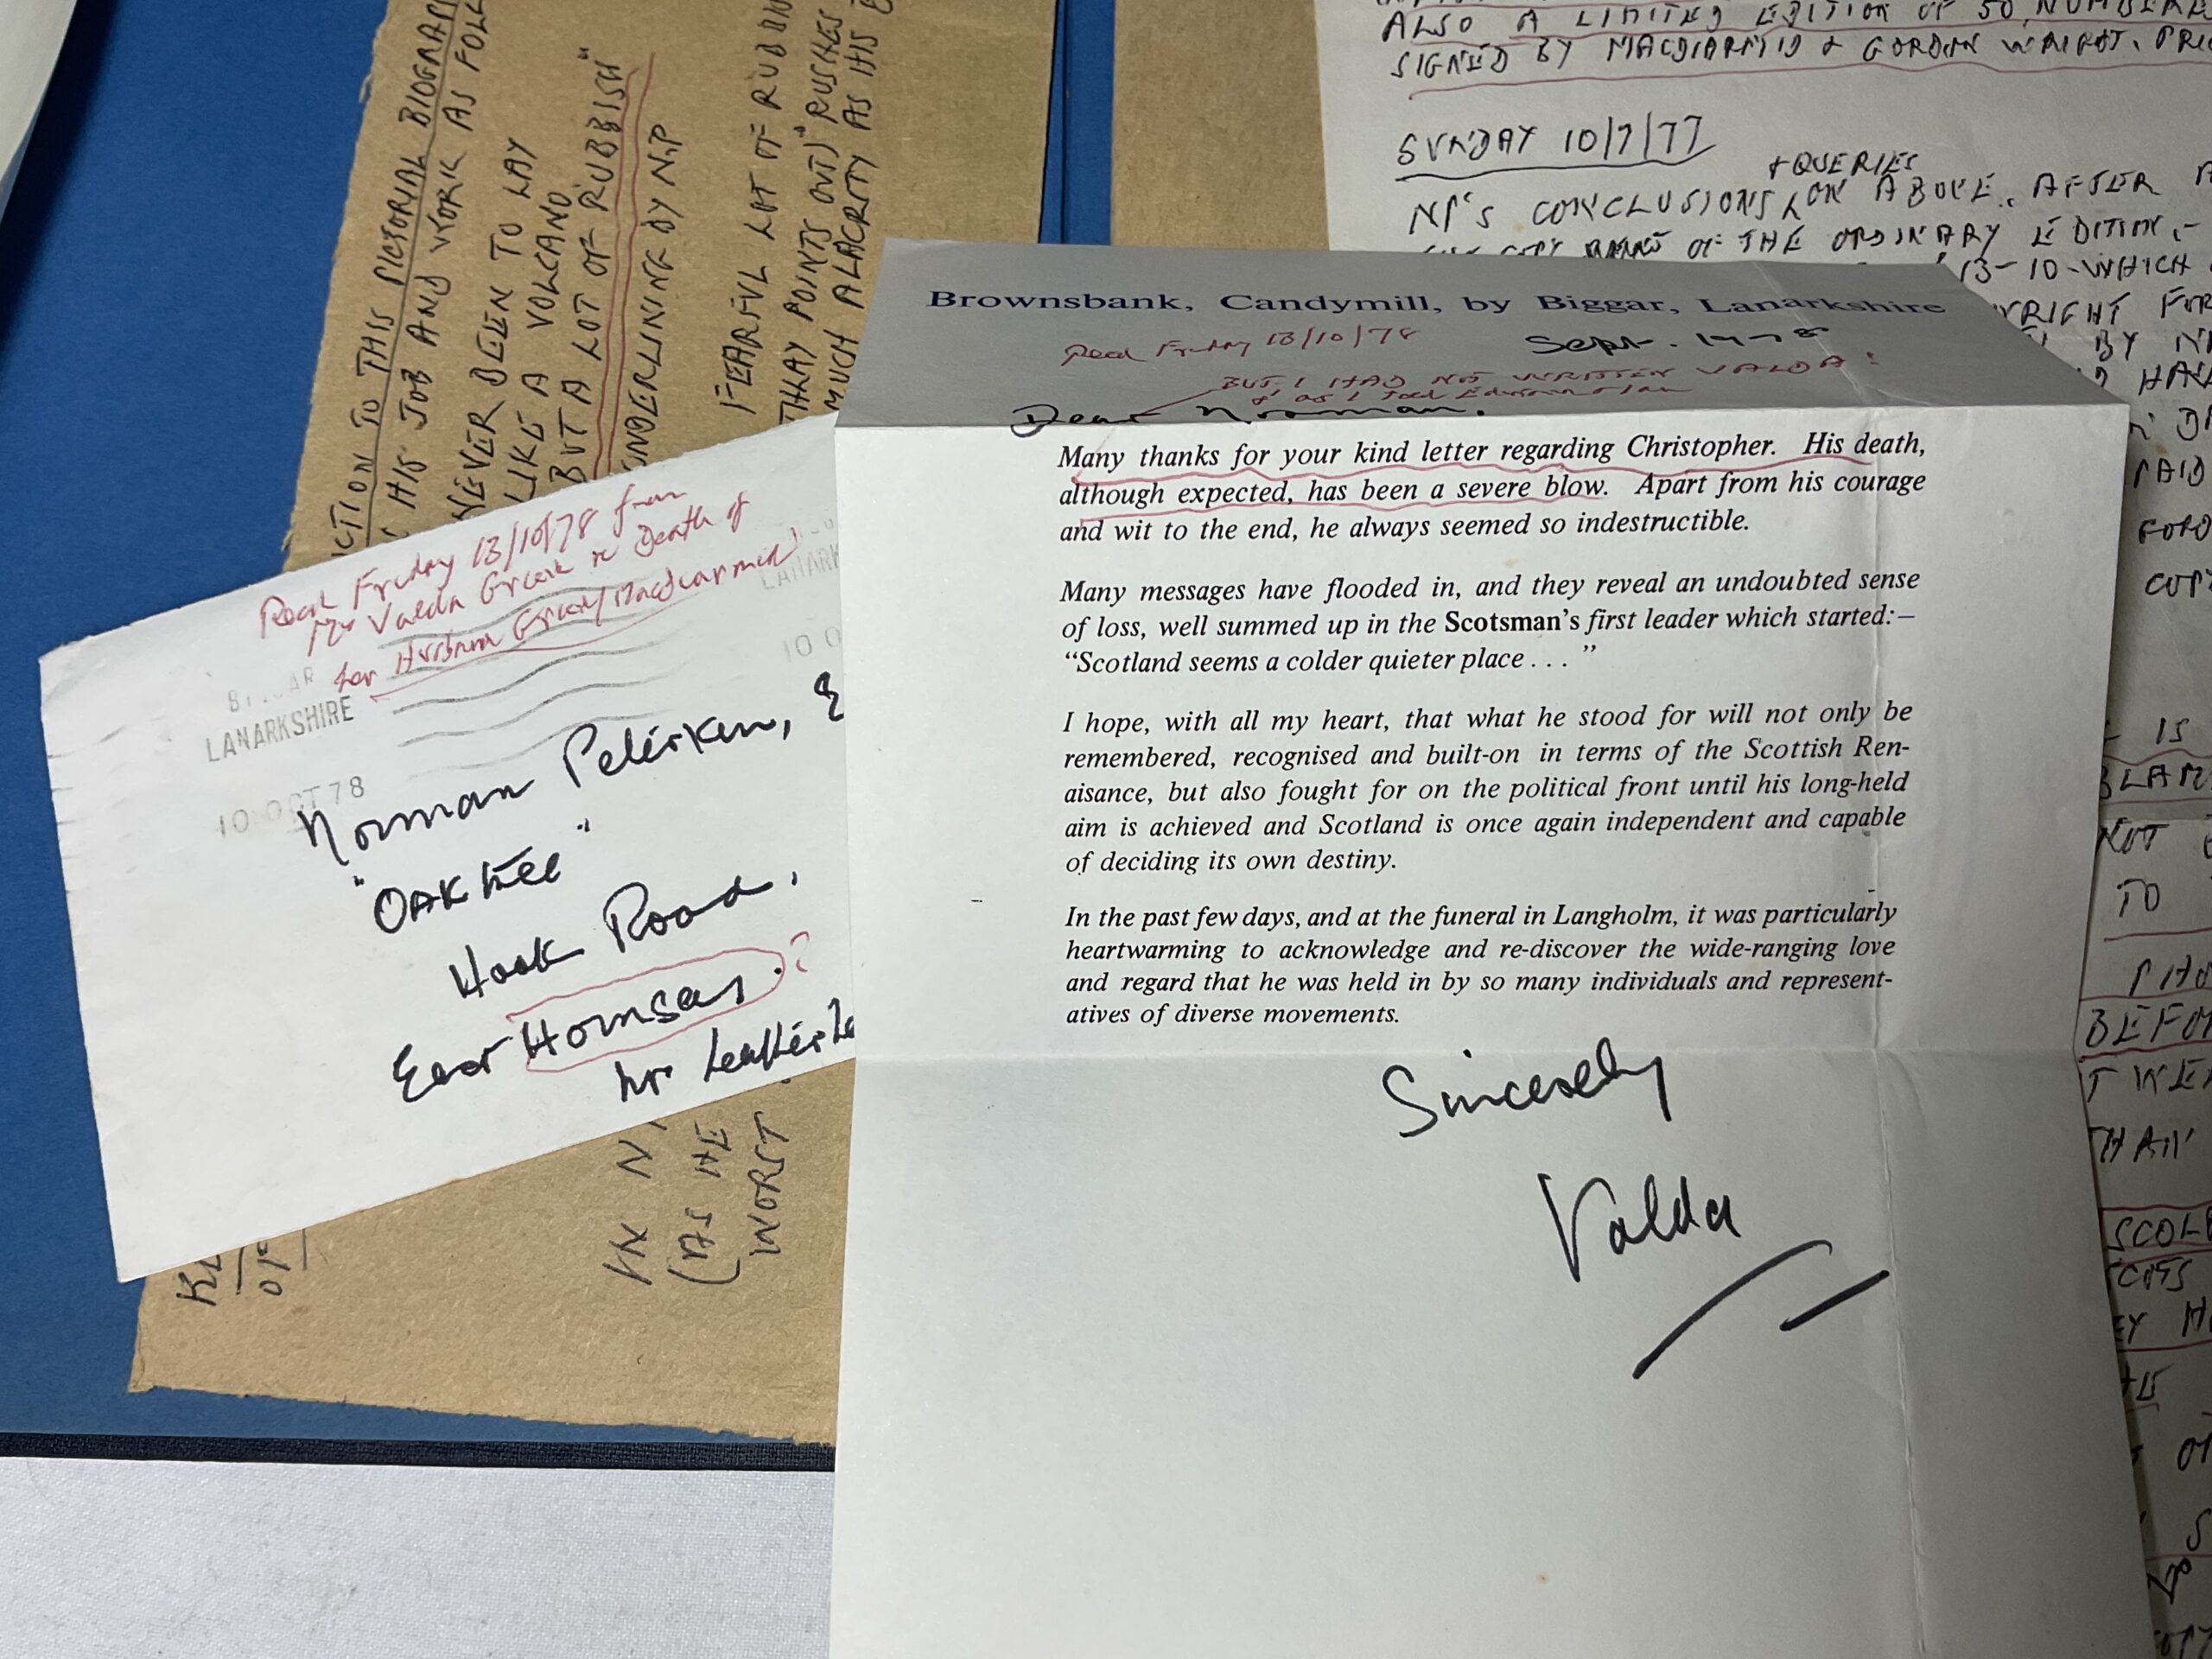 CTION TO THIS PICTORIAL BIOGRAP
HIS JOB AND WORK AS FOLL
NEVER BEEN TO LAY
LIKE A VOLCANO
BUT A LOT OF RUBBISH"
UNDERLINING BY N.P
FEARFUL LOT OF RUBBI
THRAY POINTS OUT)" RUSHES
MUCH ALACRITY AS HIS
IN N
(AS HE
WORST
ALSO A LIMITED EDITION OF 50 NUMBERE
SIGNED BY MACDIARMID & GORDON WRIGHT. PRIC
SUNDAY 10/7/77
+ QUERIES
NP'S CONCLUSIONS ON ABOVE. AFTER
OF THE ORDINARY EDITION,-
13-10-WHICH
WRIGHT FOR
BY N
HAV
PAID
FORD
COP
IS
BLAM
NOT
TO
PHO
BEFO
T WE
THAN
SCOL
SCOTS
EY H
Recd Friday 13/10/78 from
Mrs Valda Grieve re Death of
her Husband Grieve/MacDiarmid
LANARKSHIRE
10 OCT 78
LANARK
10 O
Norman Peterken, E
"OAKTREE"
Hook Road,
East Hornsey. ?
Nr Leather
Brownsbank, Candymill, by Biggar, Lanarkshire
Recd Friday 13/10/78
Sept. 1978
BUT I HAD NOT WRITTEN VALDA!
Dear Norman.
Many thanks for your kind letter regarding Christopher. His death,
although expected, has been a severe blow. Apart from his courage
and wit to the end, he always seemed so indestructible.
Many messages have flooded in, and they reveal an undoubted sense
of loss, well summed up in the Scotsman's first leader which started:—
"Scotland seems a colder quieter place . . . "
I hope, with all my heart, that what he stood for will not only be
remembered, recognised and built-on in terms of the Scottish Ren-
aisance, but also fought for on the political front until his long-held
aim is achieved and Scotland is once again independent and capable
of deciding its own destiny.
In the past few days, and at the funeral in Langholm, it was particularly
heartwarming to acknowledge and re-discover the wide-ranging love
and regard that he was held in by so many individuals and represent-
atives of diverse movements.
Sincerely
Valda